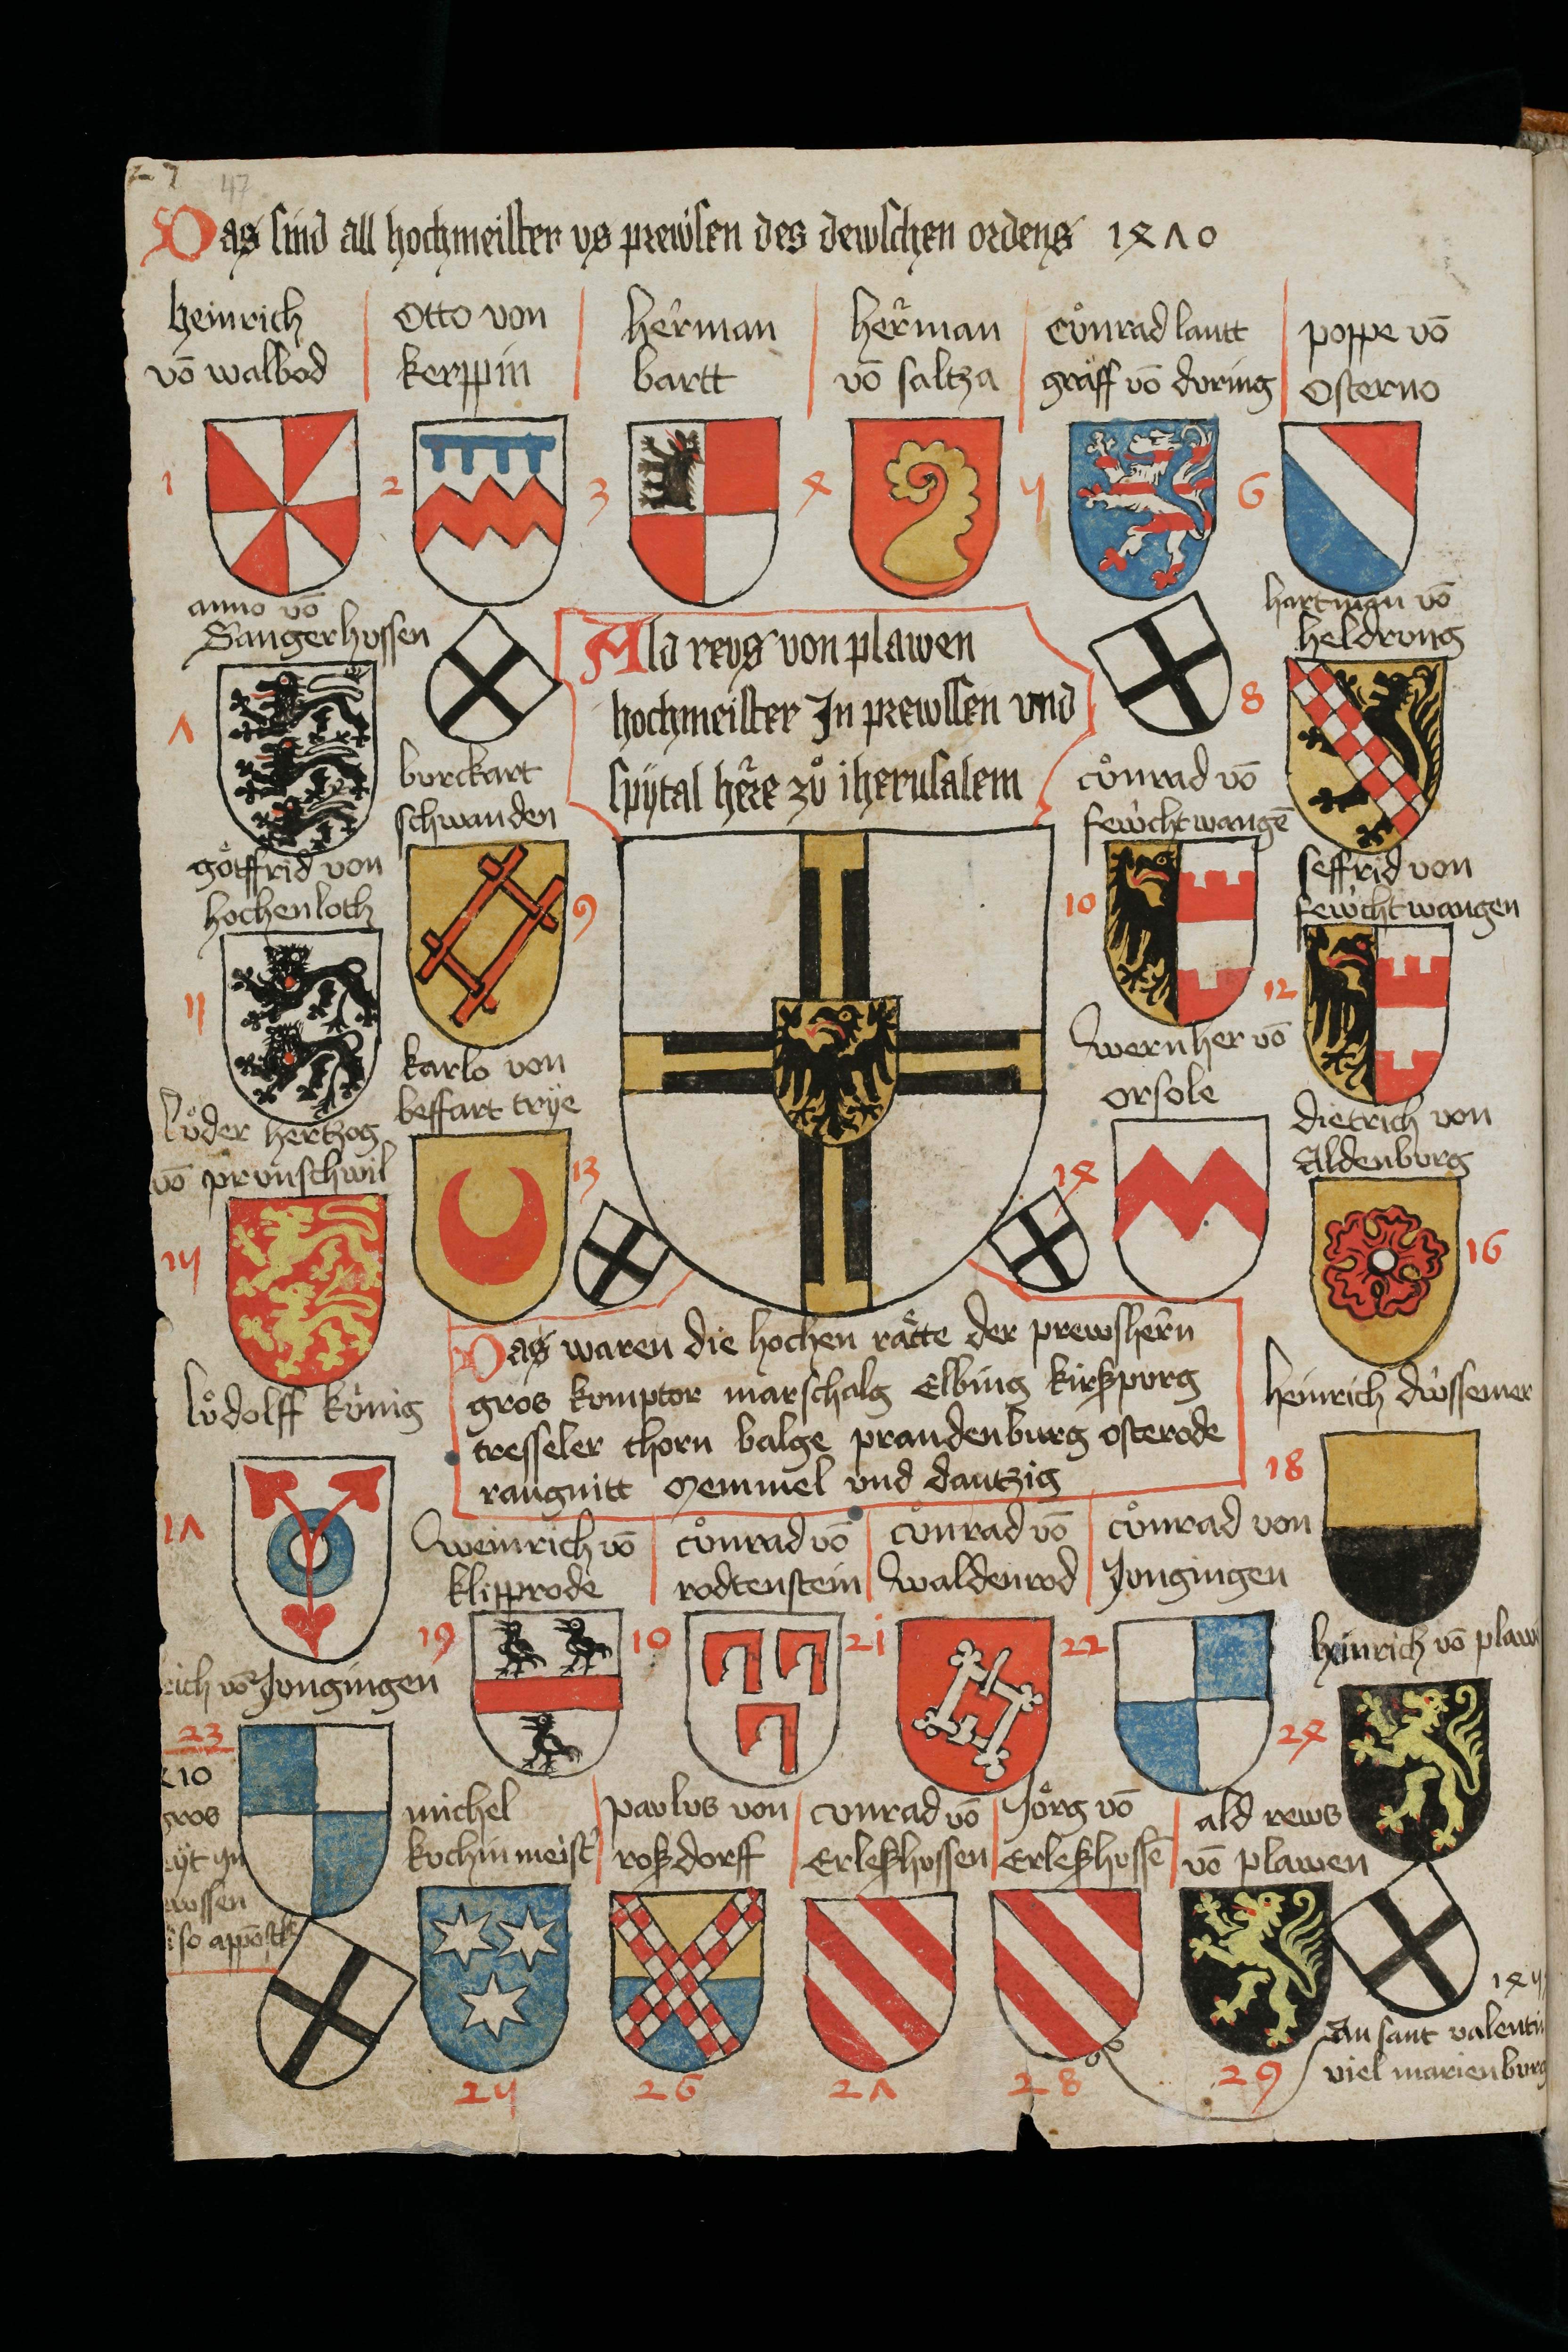 47
Das sind all hochmeister vs prewsen des dewschen ordens 1470
heinrich
võ walbod
Otto von
kerppin
herman
bartt
herman
võ saltza
Cůnrad lantt
gräff võ doring
poppe võ
Osterno
1
2
3
4
5
6
anno võ
Sangerhussen
7
Ald reys von plawen
hochmeister In prewssen vnd
spÿtal here zů iherusalem
hartman võ
heldrong
8
burckart
schwanden
9
cůnrad võ
fewchtwangẽ
10
götffrid von
hochenloch
11
seffrid von
fewchtwangen
12
karlo von
beffart trÿe
13
wernher võ
orsole
14
lůder hertzog
võ prunschwil
15
dietrich von
Aldenburg
16
Das waren die hochen rätte der prewshern
gros komptor marschalg Elbing kirsspurg
tresseler thorn balge prandenburg osterode
rangnitt memmel vnd dantzig
lůdolff kunig
17
heinrich dussemer
18
weinrich võ
klipprode
19
cůnrad võ
rodtenstein
10
cůnrad võ
waldenrod
21
cůnrad von
Jungingen
22
rich võ Jungingen
23
10
gros
heinrich võ plaw
24
michel
kochinmeist
25
paulus von
rossdorff
26
conrad võ
Erlesshussen
27
Jörg võ
Erlesshussẽ
28
ald rews
võ plawen
29
An sant valenti
viel marienburg